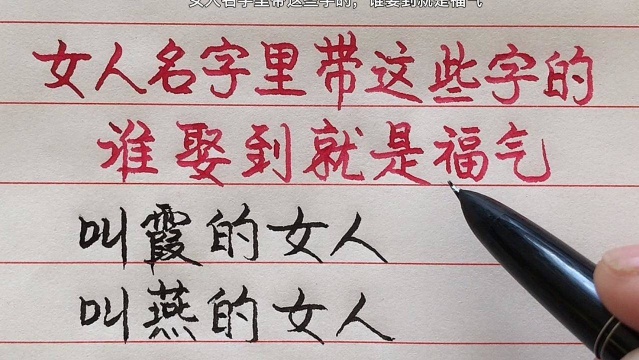 女人名字里带这些字的，谁娶到就是福气
女人名字里带这些字的
谁娶到就是福气
叫霞的女人
叫燕的女人